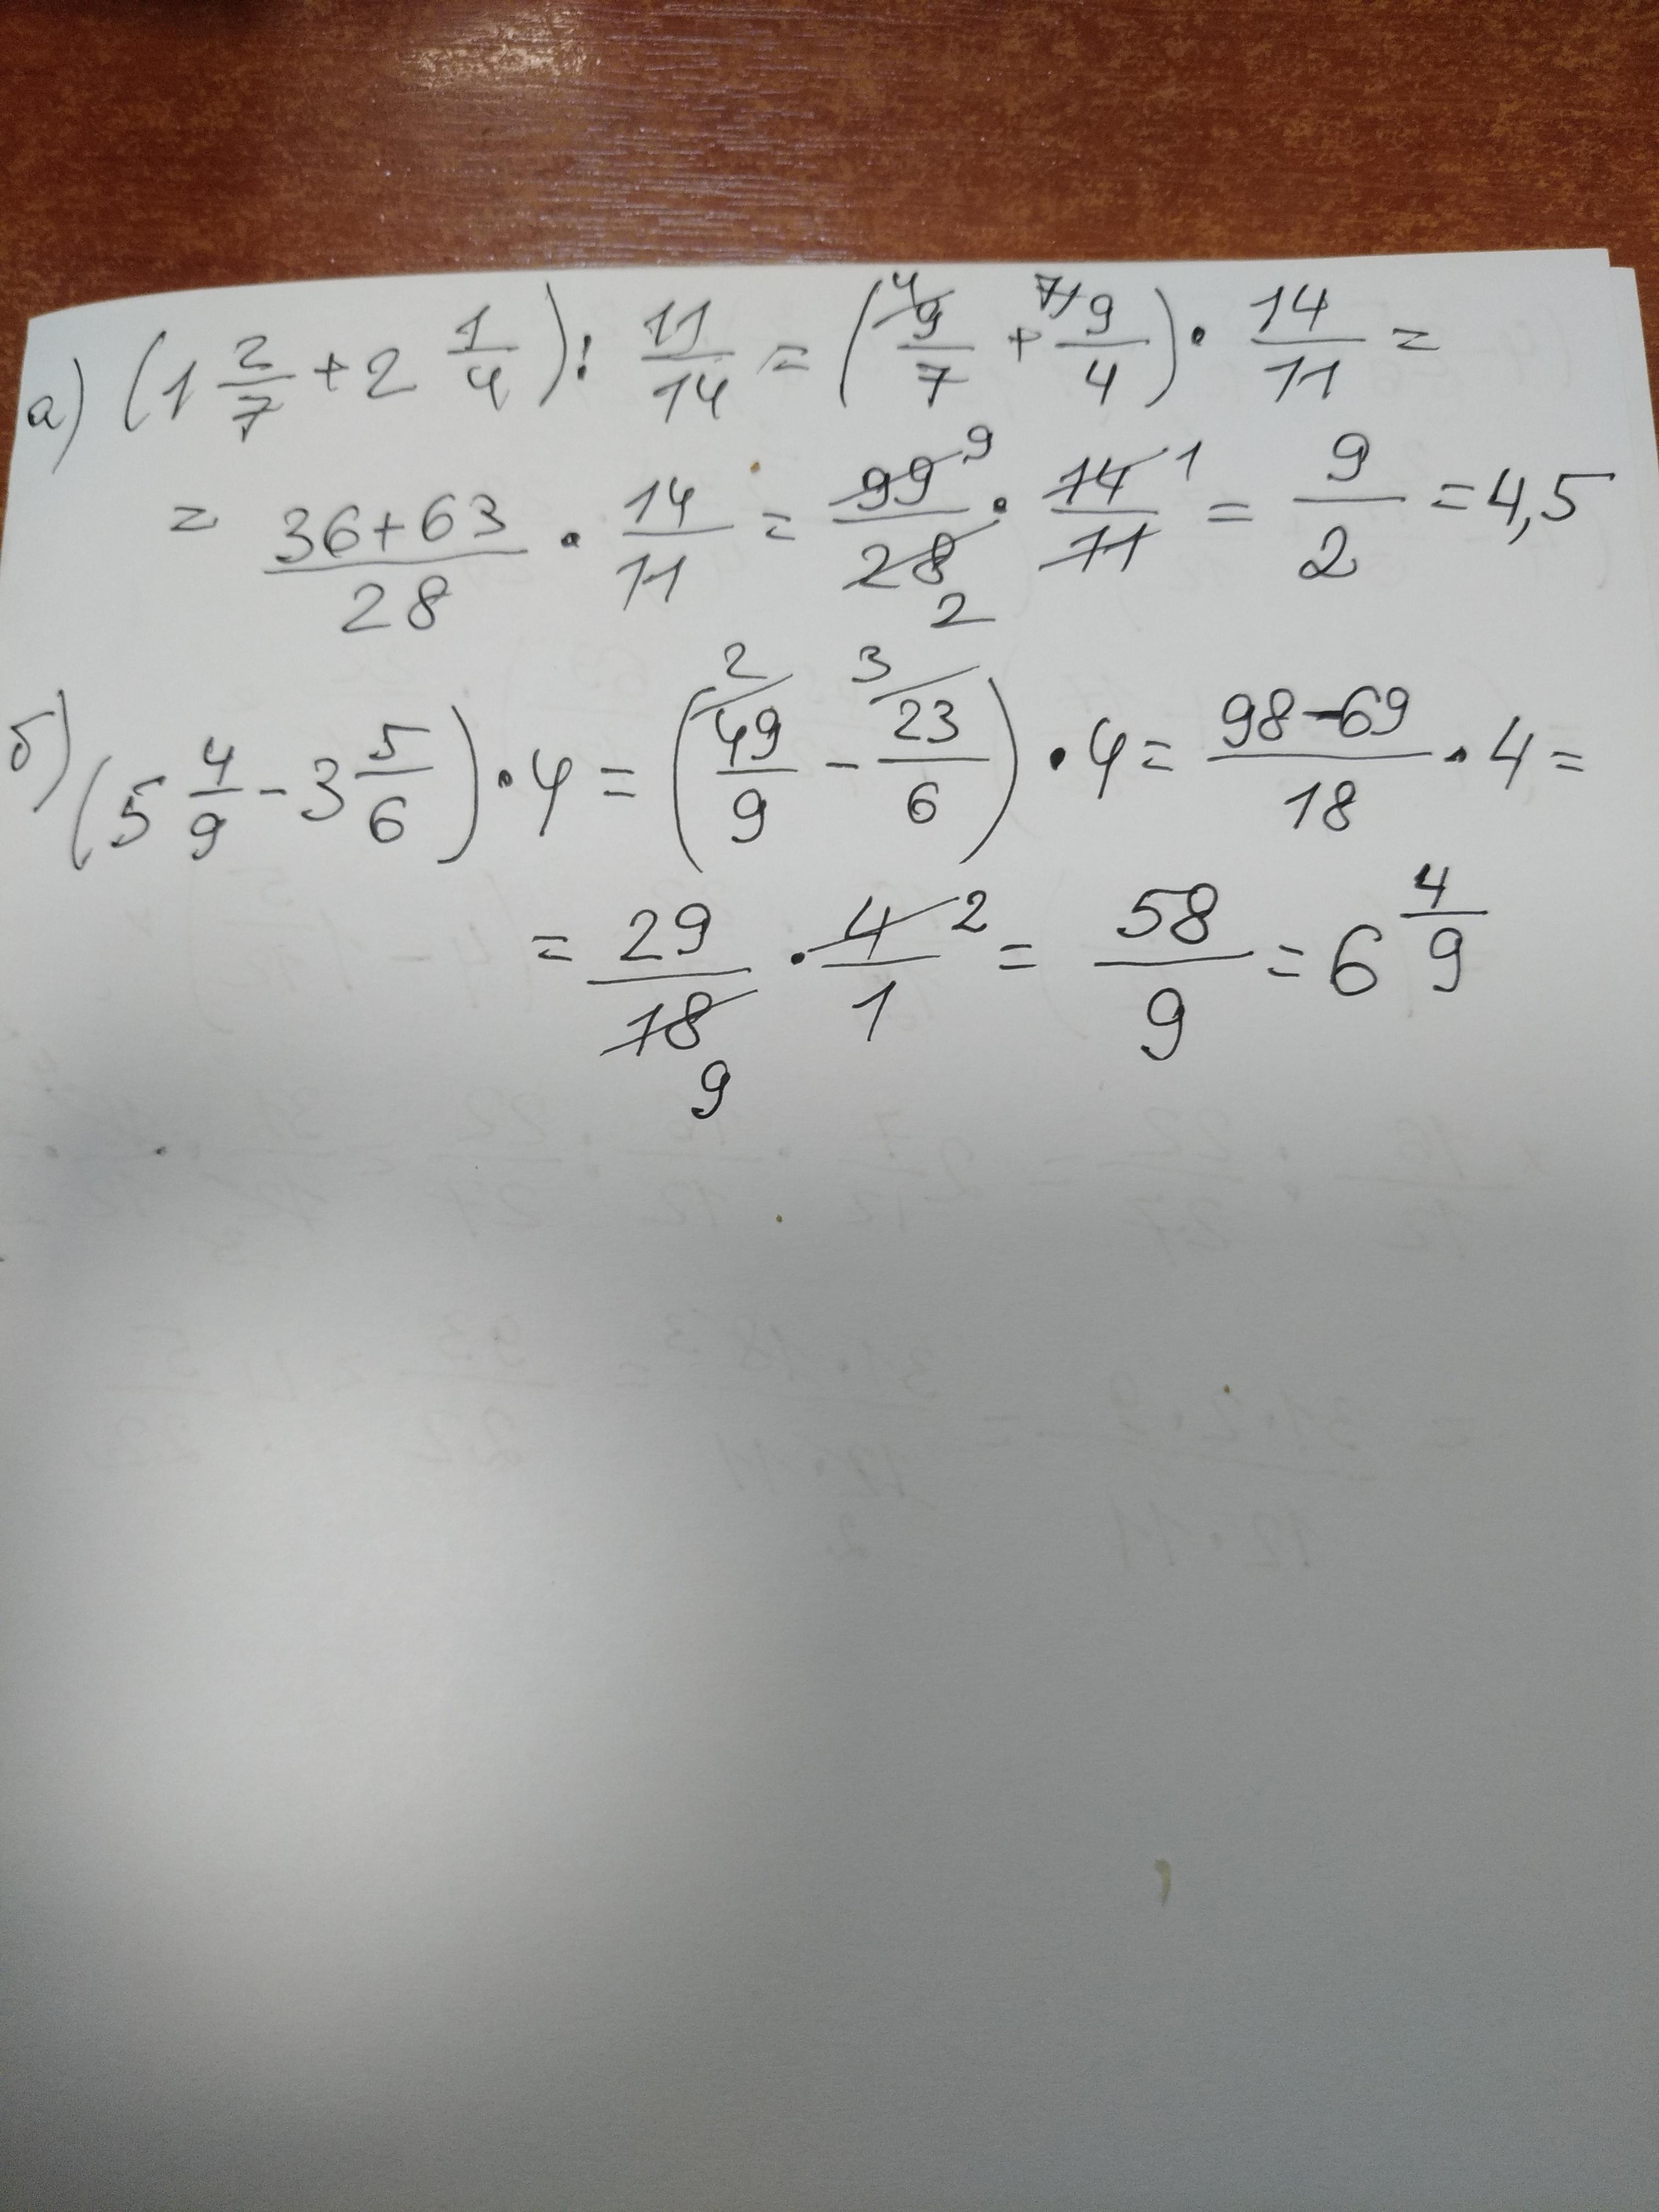 а) (1 2/7 + 2 1/4) : 11/14 = (⁴⁾9/7 + ⁷⁾9/4) · 14/11 =
= (36+63)/28 · 14/11 = 99 9/28 2 · 14 1/11 = 9/2 = 4,5
б) (5 4/9 - 3 5/6) · 4 = (²⁾49/9 - ³⁾23/6) · 4 = (98-69)/18 · 4 =
= 29/18 9 · 4 2/1 = 58/9 = 6 4/9